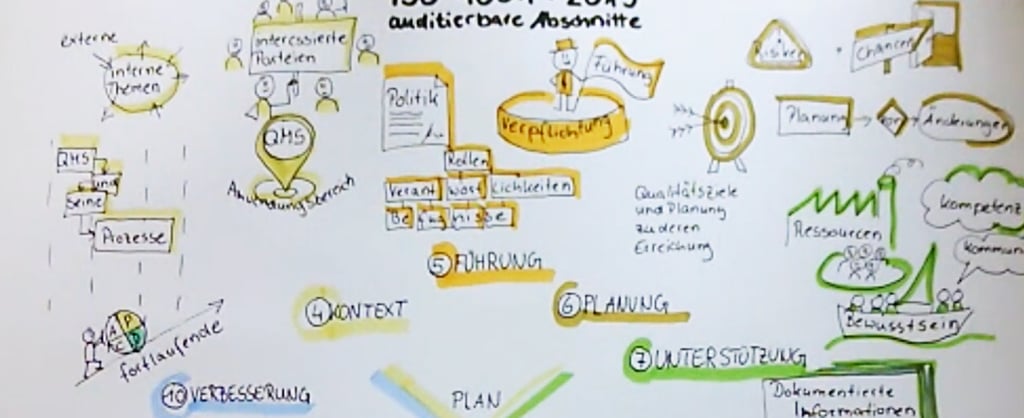 auditierbare Abschnitte
externe
interne
Themen
Interessierte
Parteien
QMS
Anwendungsbereich
QMS
und
seine
Prozesse
fortlaufende
A P
C D
Politik
Führung
Verpflichtung
Rollen
Verant wort lichkeiten
Be fug nisse
⑤ FÜHRUNG
④ KONTEXT
Risiken
Chancen
Planung
von
Änderungen
Qualitätsziele
und Planung
zu deren
Erreichung
⑥ PLANUNG
Ressourcen
Kompetenz
Kommun
Bewusstsein
⑦ UNTERSTÜTZUNG
Dokumentierte
Informationen
⑩ VERBESSERUNG
PLAN